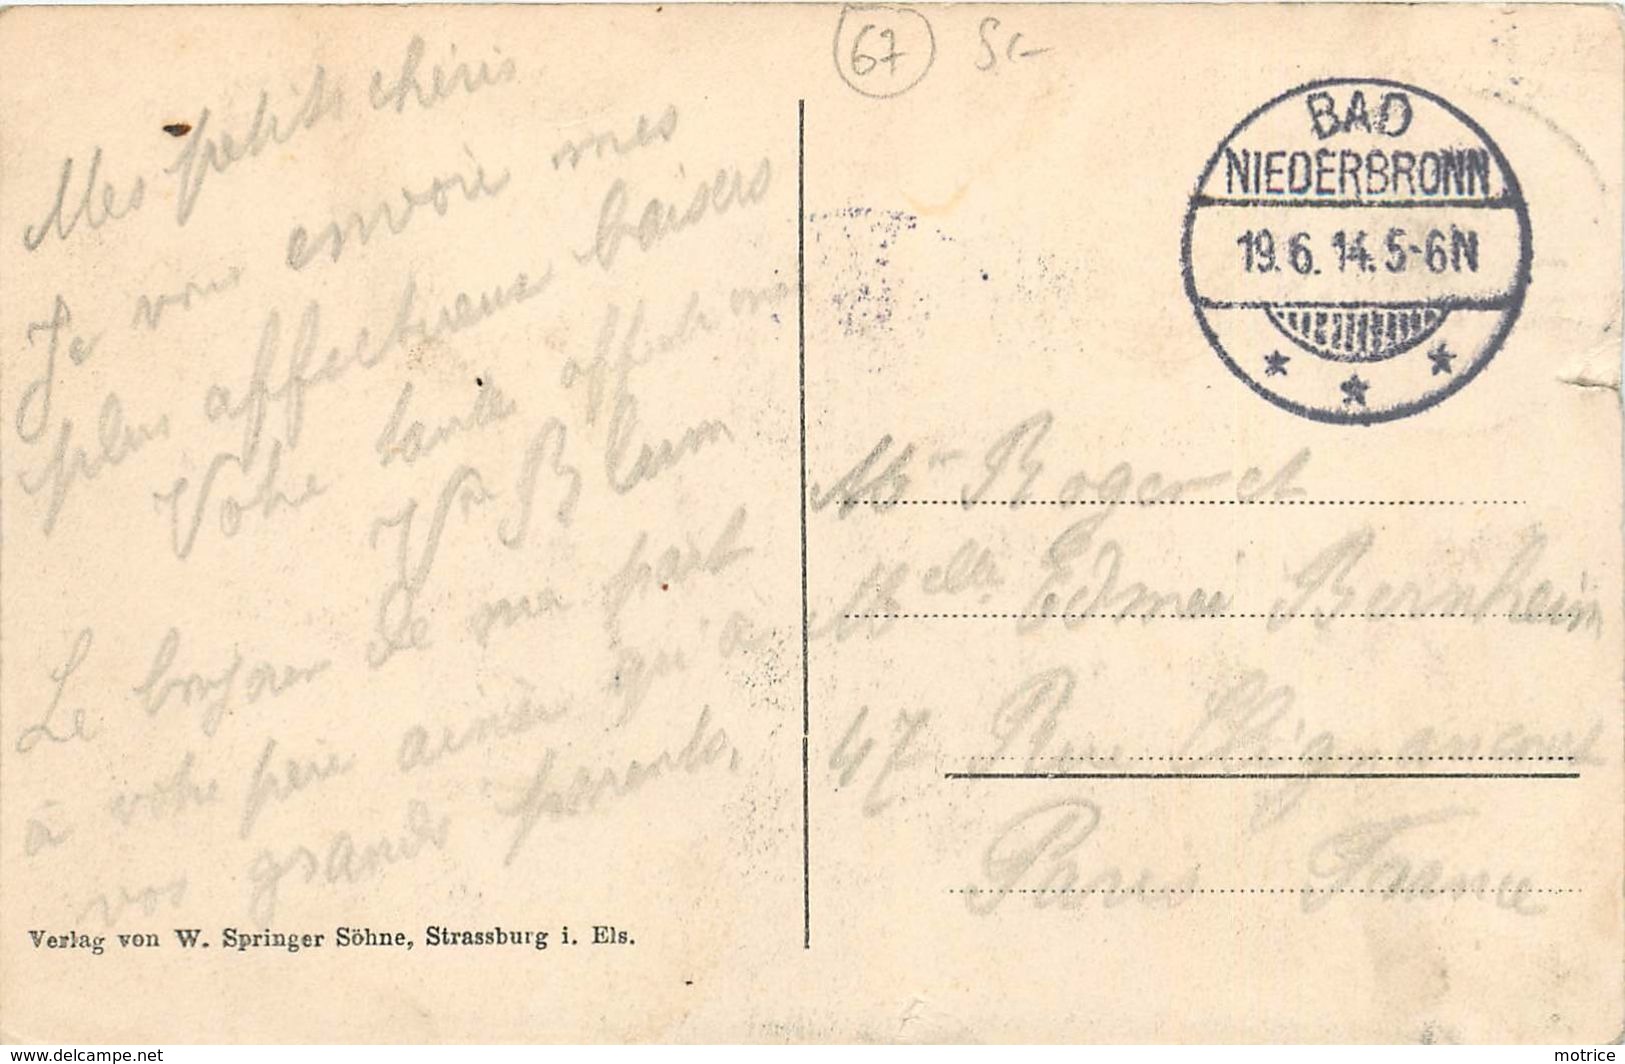 67 Sc
BAD
NIEDERBRONN
19.6.14.5-6N
Mes petits chéris
Je vous envoie mes
plus affectueux baisers
Votre tante affect
Vve Blum
Le bonjour de ma part
à votre père ainsi qu'à
vos grands parents,
Mr Roger et
Melle Edmée Bernheim
47 Rue Clignancourt
Paris France
Verlag von W. Springer Söhne, Strassburg i. Els.
www.delcampe.net
motrice